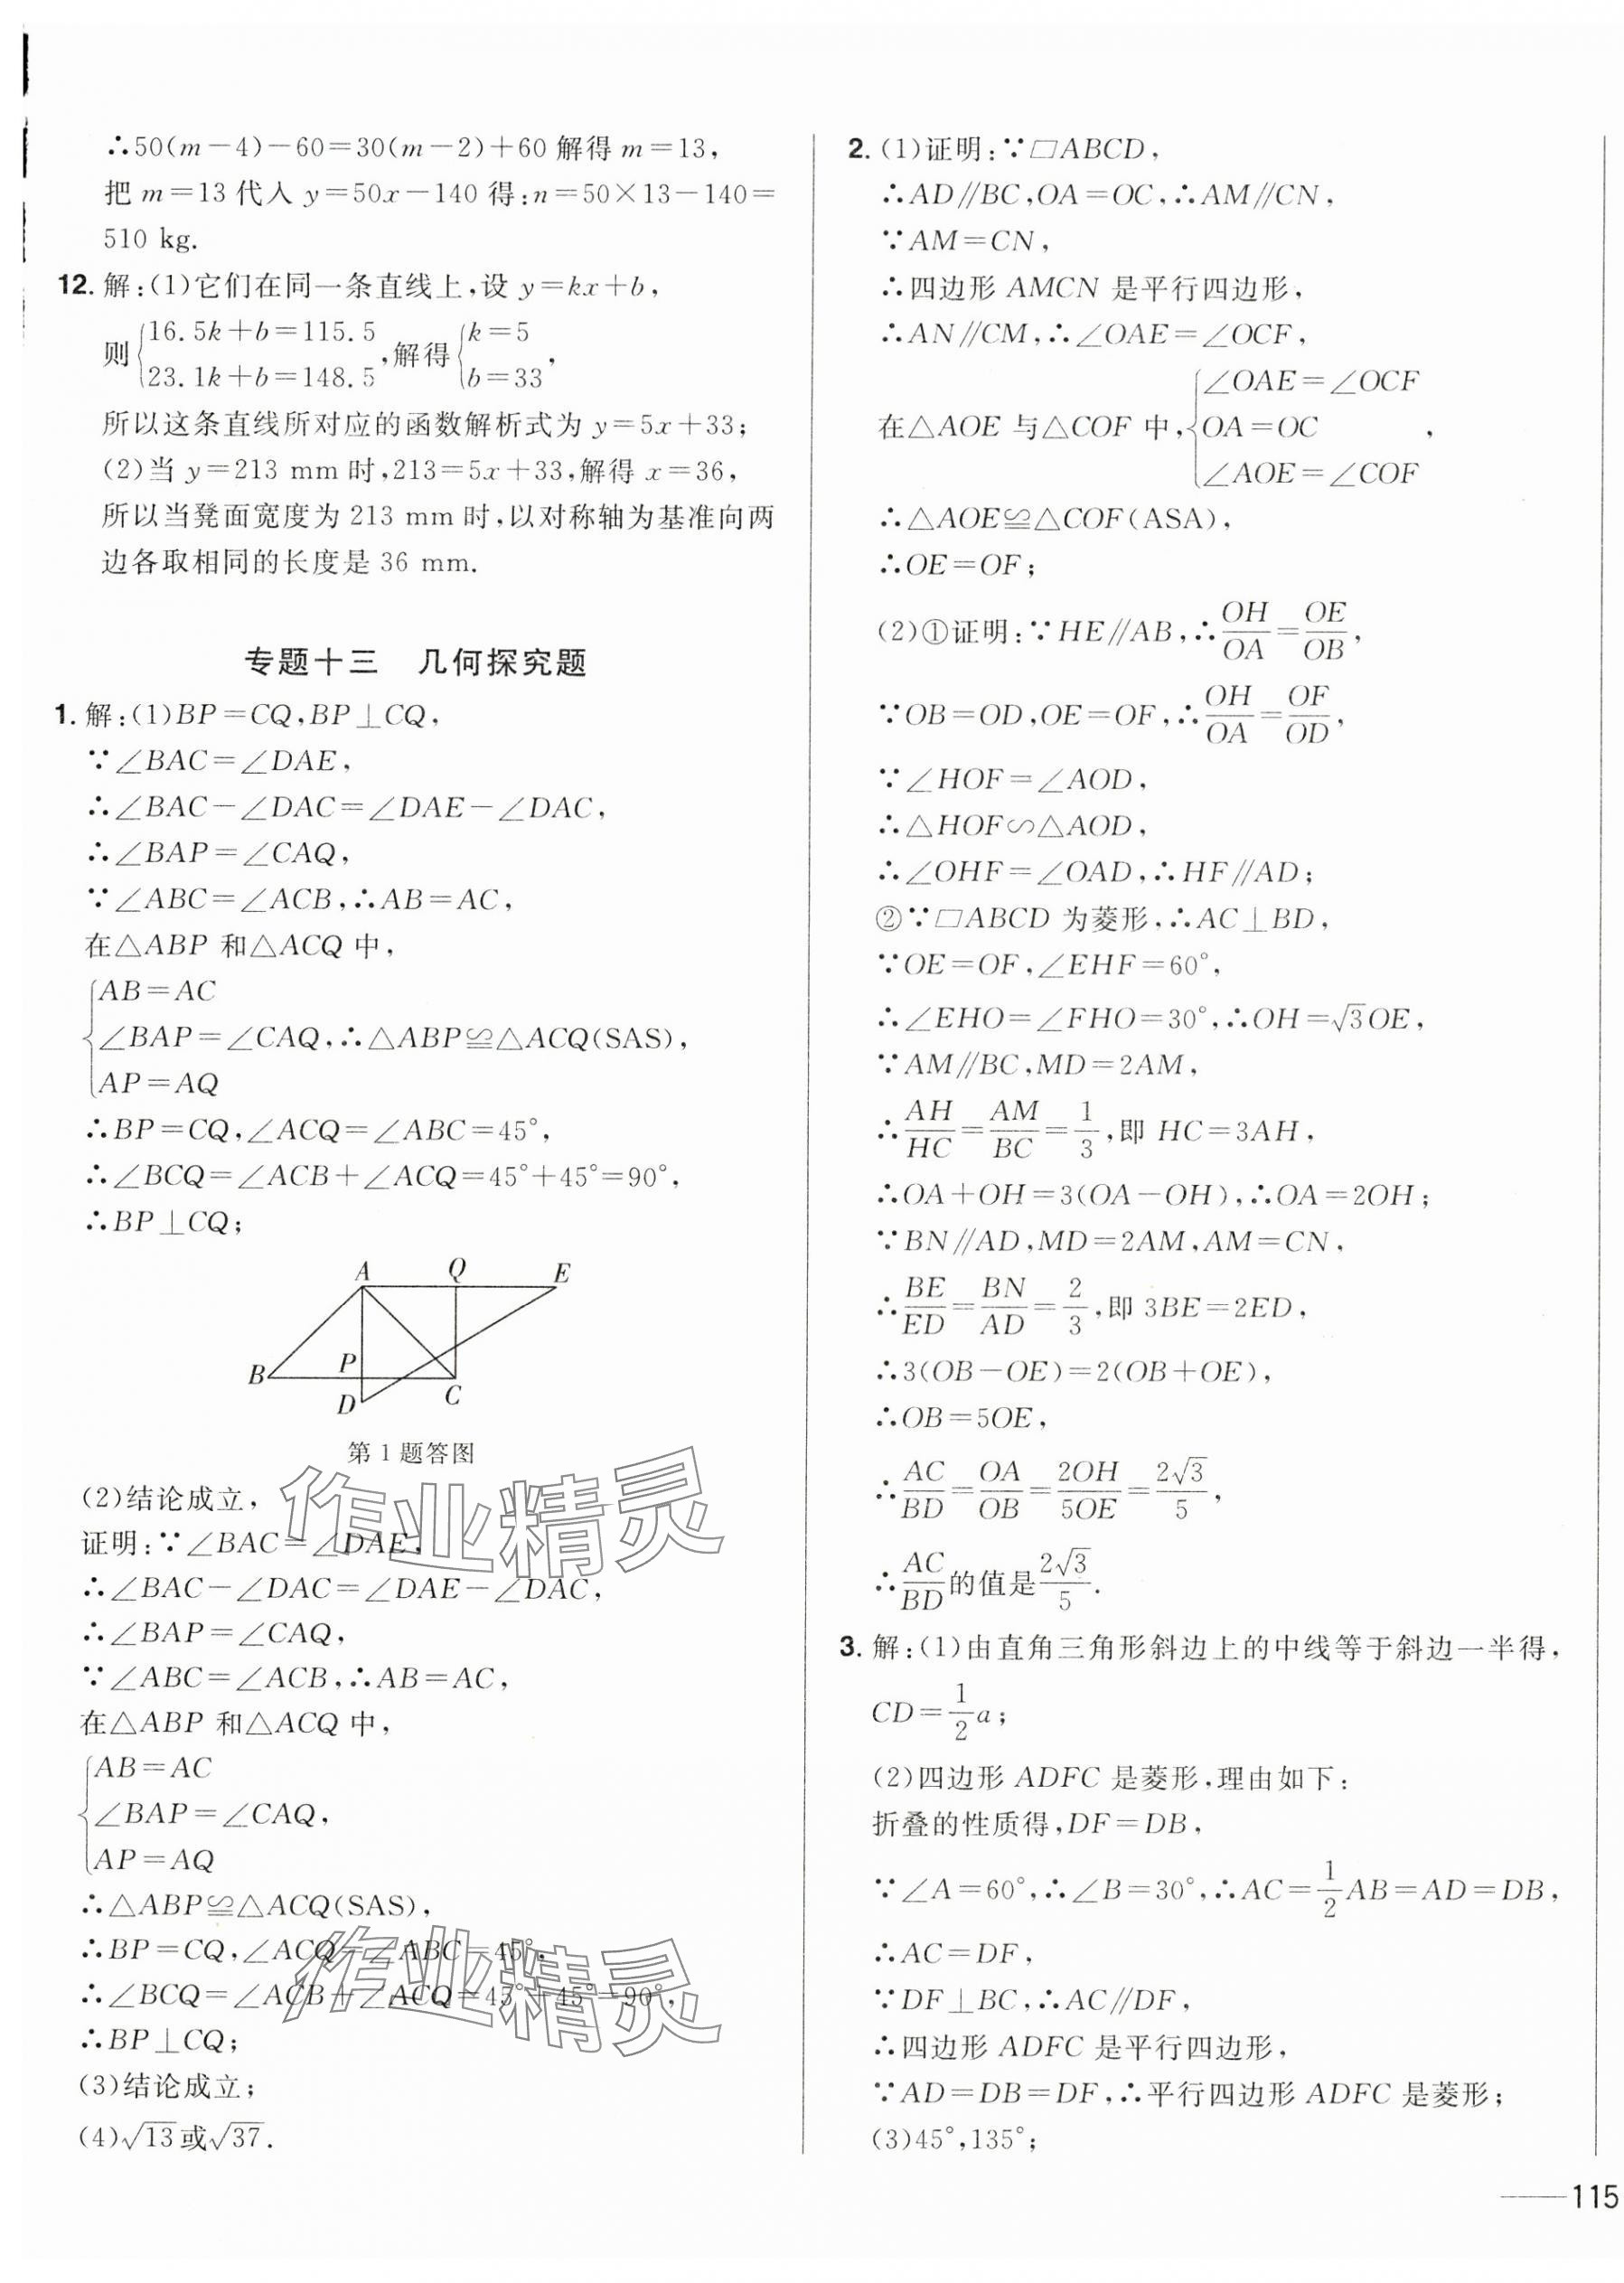 ∴50(m－4)－60＝30(m－2)＋60 解得 m＝13，
把 m＝13 代入 y＝50x－140 得：n＝50×13－140＝
510 kg.
12. 解：(1)它们在同一条直线上，设 y＝kx＋b，
则{16.5k＋b＝115.5
23.1k＋b＝148.5，解得{k＝5
b＝33，
所以这条直线所对应的函数解析式为 y＝5x＋33；
(2)当 y＝213 mm 时，213＝5x＋33，解得 x＝36，
所以当凳面宽度为 213 mm 时，以对称轴为基准向两
边各取相同的长度是 36 mm.
专题十三 几何探究题
1. 解：(1)BP＝CQ，BP⊥CQ，
∵∠BAC＝∠DAE，
∴∠BAC－∠DAC＝∠DAE－∠DAC，
∴∠BAP＝∠CAQ，
∵∠ABC＝∠ACB，∴AB＝AC，
在△ABP 和△ACQ 中，
{AB＝AC
∠BAP＝∠CAQ，∴△ABP≌△ACQ(SAS)，
AP＝AQ
∴BP＝CQ，∠ACQ＝∠ABC＝45°，
∴∠BCQ＝∠ACB＋∠ACQ＝45°＋45°＝90°，
∴BP⊥CQ；
A Q E
B P C
D
第 1 题答图
(2)结论成立，
证明：∵∠BAC＝∠DAE，
∴∠BAC－∠DAC＝∠DAE－∠DAC，
∴∠BAP＝∠CAQ，
∵∠ABC＝∠ACB，∴AB＝AC，
在△ABP 和△ACQ 中，
{AB＝AC
∠BAP＝∠CAQ，
AP＝AQ
∴△ABP≌△ACQ(SAS)，
∴BP＝CQ，∠ACQ＝∠ABC＝45°，
∴∠BCQ＝∠ACB＋∠ACQ＝45°＋45°＝90°，
∴BP⊥CQ；
(3)结论成立；
(4)√13或√37.
作业精灵
作业精灵
2. (1)证明：∵▱ABCD，
∴AD∥BC，OA＝OC，∴AM∥CN，
∵AM＝CN，
∴四边形 AMCN 是平行四边形，
∴AN∥CM，∴∠OAE＝∠OCF，
在△AOE 与△COF 中，{∠OAE＝∠OCF
OA＝OC，
∠AOE＝∠COF
∴△AOE≌△COF(ASA)，
∴OE＝OF；
(2)①证明：∵HE∥AB，∴OH/OA＝OE/OB，
∵OB＝OD，OE＝OF，∴OH/OA＝OF/OD，
∵∠HOF＝∠AOD，
∴△HOF∽△AOD，
∴∠OHF＝∠OAD，∴HF∥AD；
②∵▱ABCD 为菱形，∴AC⊥BD，
∵OE＝OF，∠EHF＝60°，
∴∠EHO＝∠FHO＝30°，∴OH＝√3OE，
∵AM∥BC，MD＝2AM，
∴AH/HC＝AM/BC＝1/3，即 HC＝3AH，
∴OA＋OH＝3(OA－OH)，∴OA＝2OH；
∵BN∥AD，MD＝2AM，AM＝CN，
∴BE/ED＝BN/AD＝2/3，即 3BE＝2ED，
∴3(OB－OE)＝2(OB＋OE)，
∴OB＝5OE，
∴AC/BD＝OA/OB＝2OH/5OE＝2√3/5，
∴AC/BD的值是2√3/5.
3. 解：(1)由直角三角形斜边上的中线等于斜边一半得，
CD＝1/2a；
(2)四边形 ADFC 是菱形，理由如下：
折叠的性质得，DF＝DB，
∵∠A＝60°，∴∠B＝30°，∴AC＝1/2AB＝AD＝DB，
∴AC＝DF，
∵DF⊥BC，∴AC∥DF，
∴四边形 ADFC 是平行四边形，
∵AD＝DB＝DF，∴平行四边形 ADFC 是菱形；
(3)45°，135°；
115